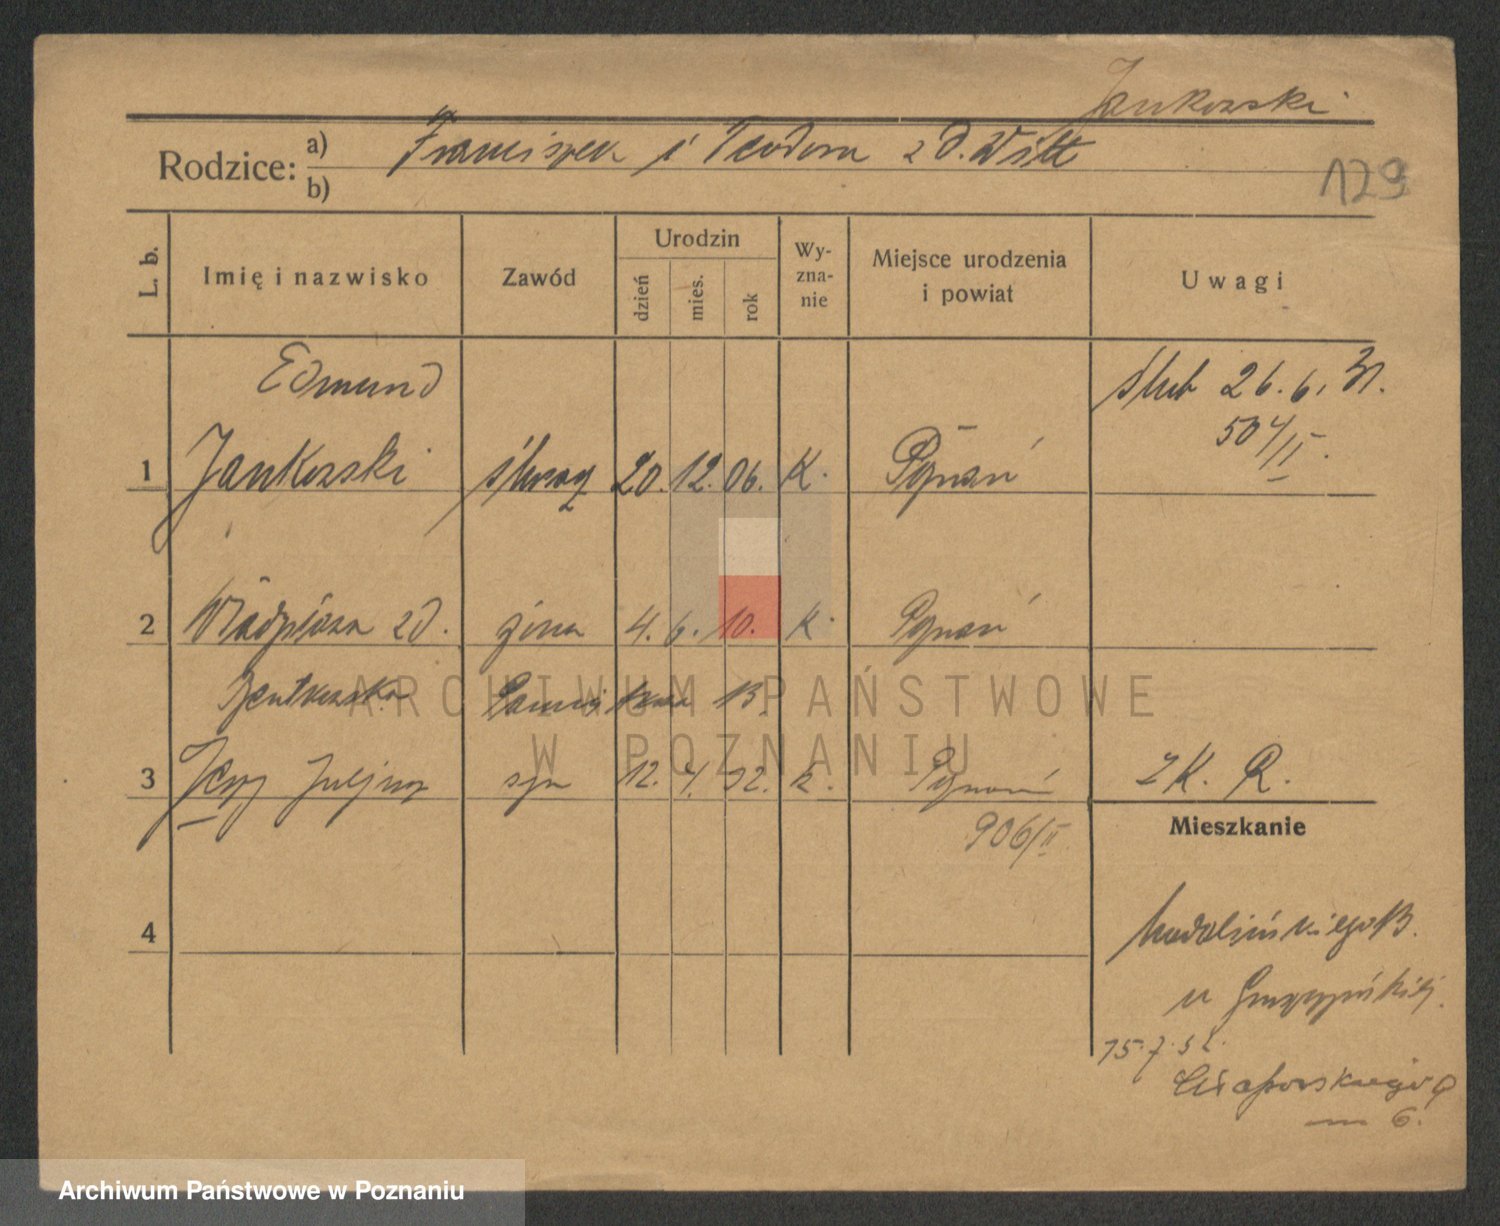 Jankowski
Rodzice: a) Franciszek i Teodora z d. Witt
b)
129
L. b.
Imię i nazwisko
Zawód
Urodzin
dzień
mies.
rok
Wy-
zna-
nie
Miejsce urodzenia
i powiat
Uwagi
Edmund
ślub 26.6.31.
504/II.
1 Jankowski ślusarz 20. 12. 06. K. Poznań
2 z d. żona 4. 6. 10. K. Poznań
13.
3 Jerzy syn 12. 4. 32. k. Poznań
906/II
z K. R.
Mieszkanie
4
Madalińskiego 13.
u
15.7.32.
m 6.
ARCHIWUM PAŃSTWOWE
W POZNANIU
Archiwum Państwowe w Poznaniu